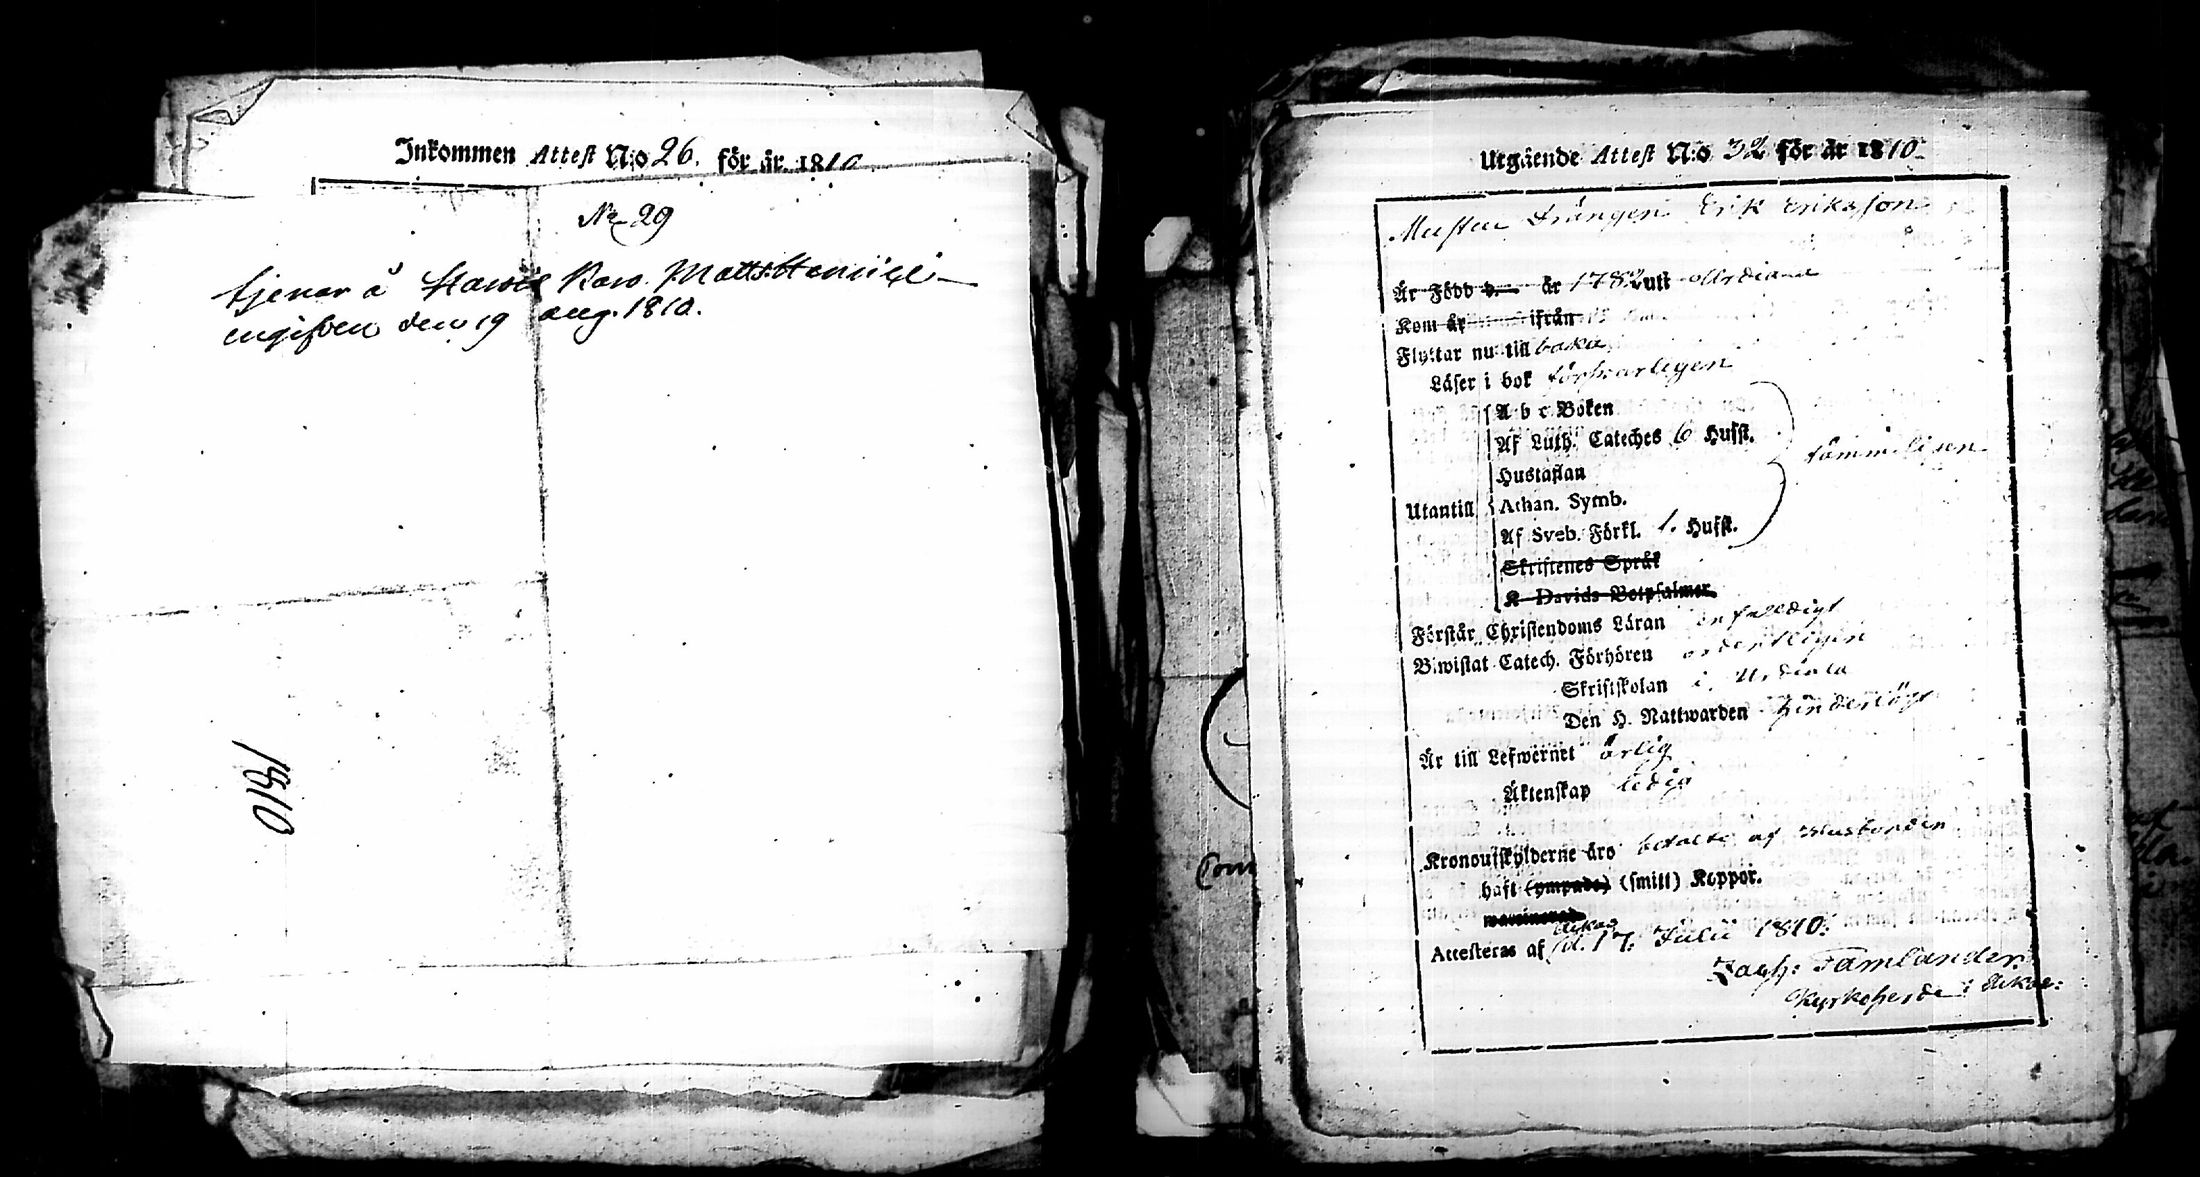 Inkommen Attest N:o 26. för år 1810
No 29
tjenar å Karo. Matts
ingifven den 19 aug. 1810.
1810
Utgående Attest N:o 32 för år 1810
Drängen Erik Eriksson
Är Född d. år 1782 uti Urdiala
Kom år ifrån
Flyttar nu till baka
Läser i bok försvarligen
A b c Boken
Af Luth. Cateches 6 Hufst.
tämmeligen
Hustaflan
Utantill Athan. Symb.
Af Sveb. Förkl. 1. Hufst.
Skriftenes Språk
K Davids Botpsalmer
Förstår Christendoms Läran enfaldigt
Biwistat Catech. Förhören ordentligen
Skriftskolan i Urdiala
Den H. Nattwarden
Är till Lefwernet ärlig
Äktenskap ledig
Kronoutskylderne äro betalte af Husbonden
haft (ympade) (smitt) Koppor.
waccinerad
Akas
Attesteras af d. 17. Julii 1810.
Zach: Tamlander
Kyrkoherde i Akas:
Com